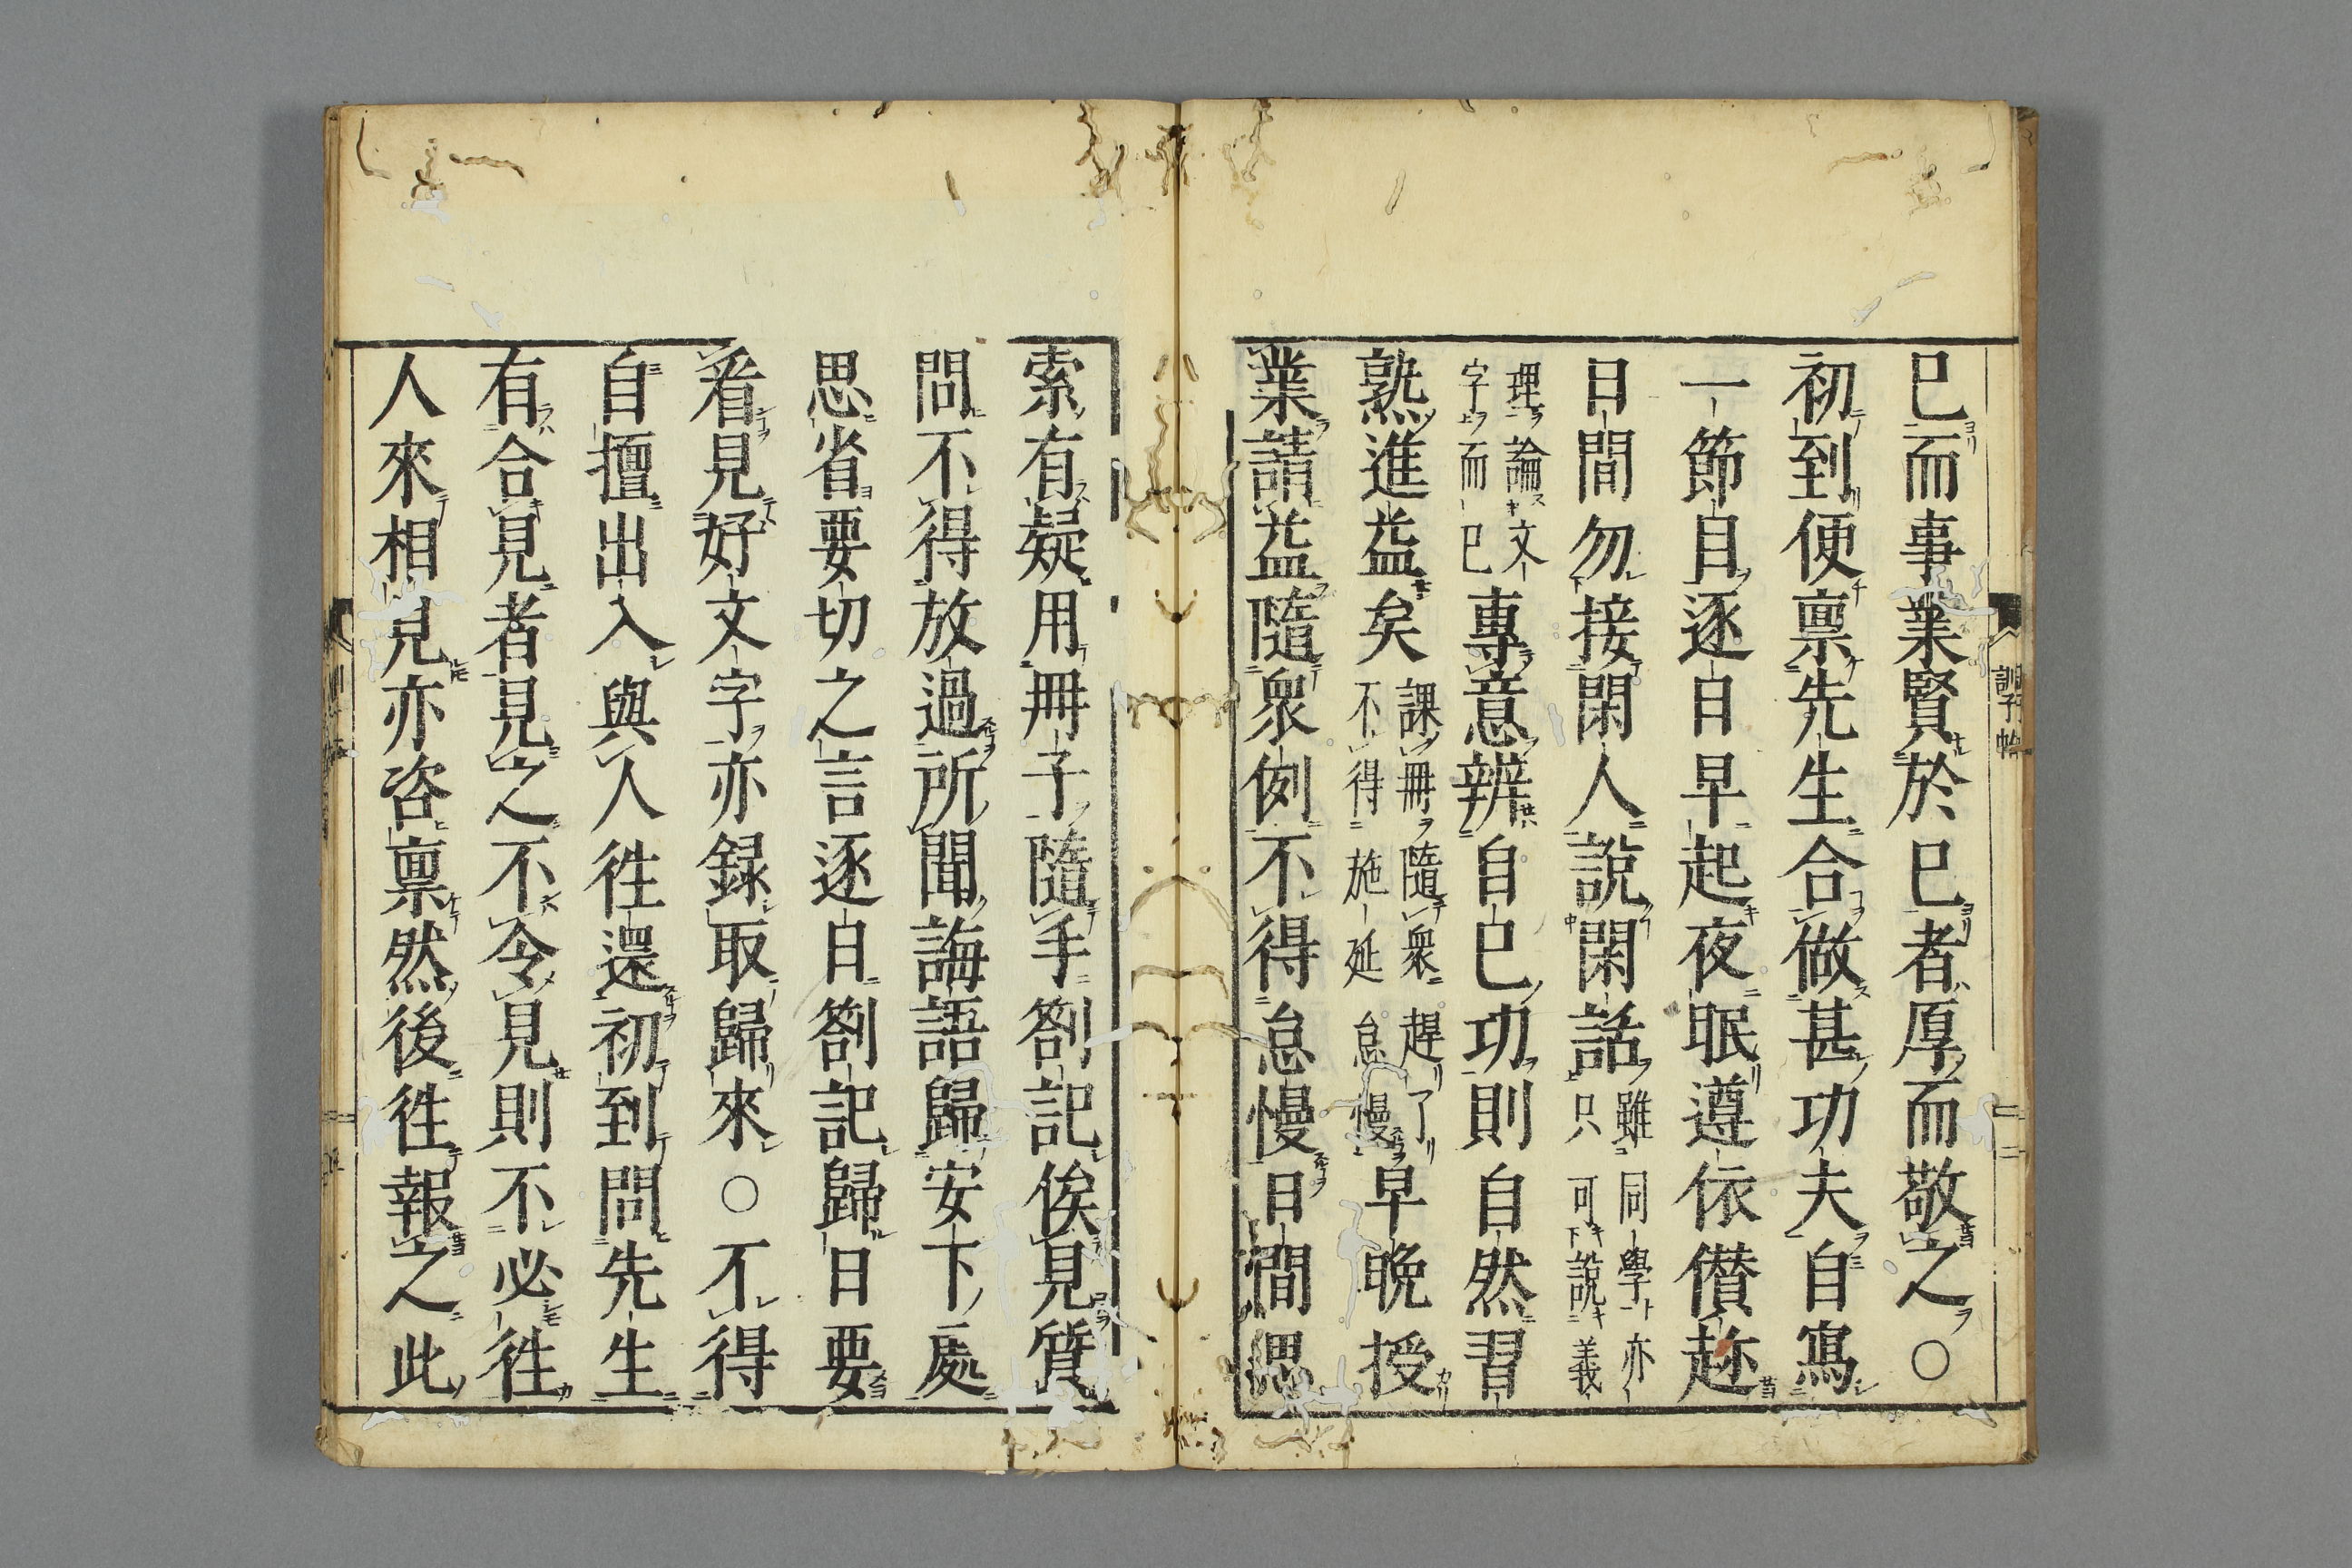 已而事業賢於已者厚而敬之○
初到便禀先生合做甚功夫自寫
一節目逐日早起夜眠遵依儹趂
日間勿接閑人說閑話雖同學亦只可說義
理論文字而已專意辨自已功則自然習
熟進益矣課冊隨衆趕了不得施延怠慢早晩授
業請益隨衆例不得怠慢日間思
索有疑用冊子隨手劄記俟見質
問不得放過所聞誨語歸安下處
思省要切之言逐日劄記歸日要
看見好文字亦録取歸來○不得
自擅出入與人徃還初到問先生
有合見者見之不令見則不必徃
人來相見亦咨禀然後徃報之此
訓子帖